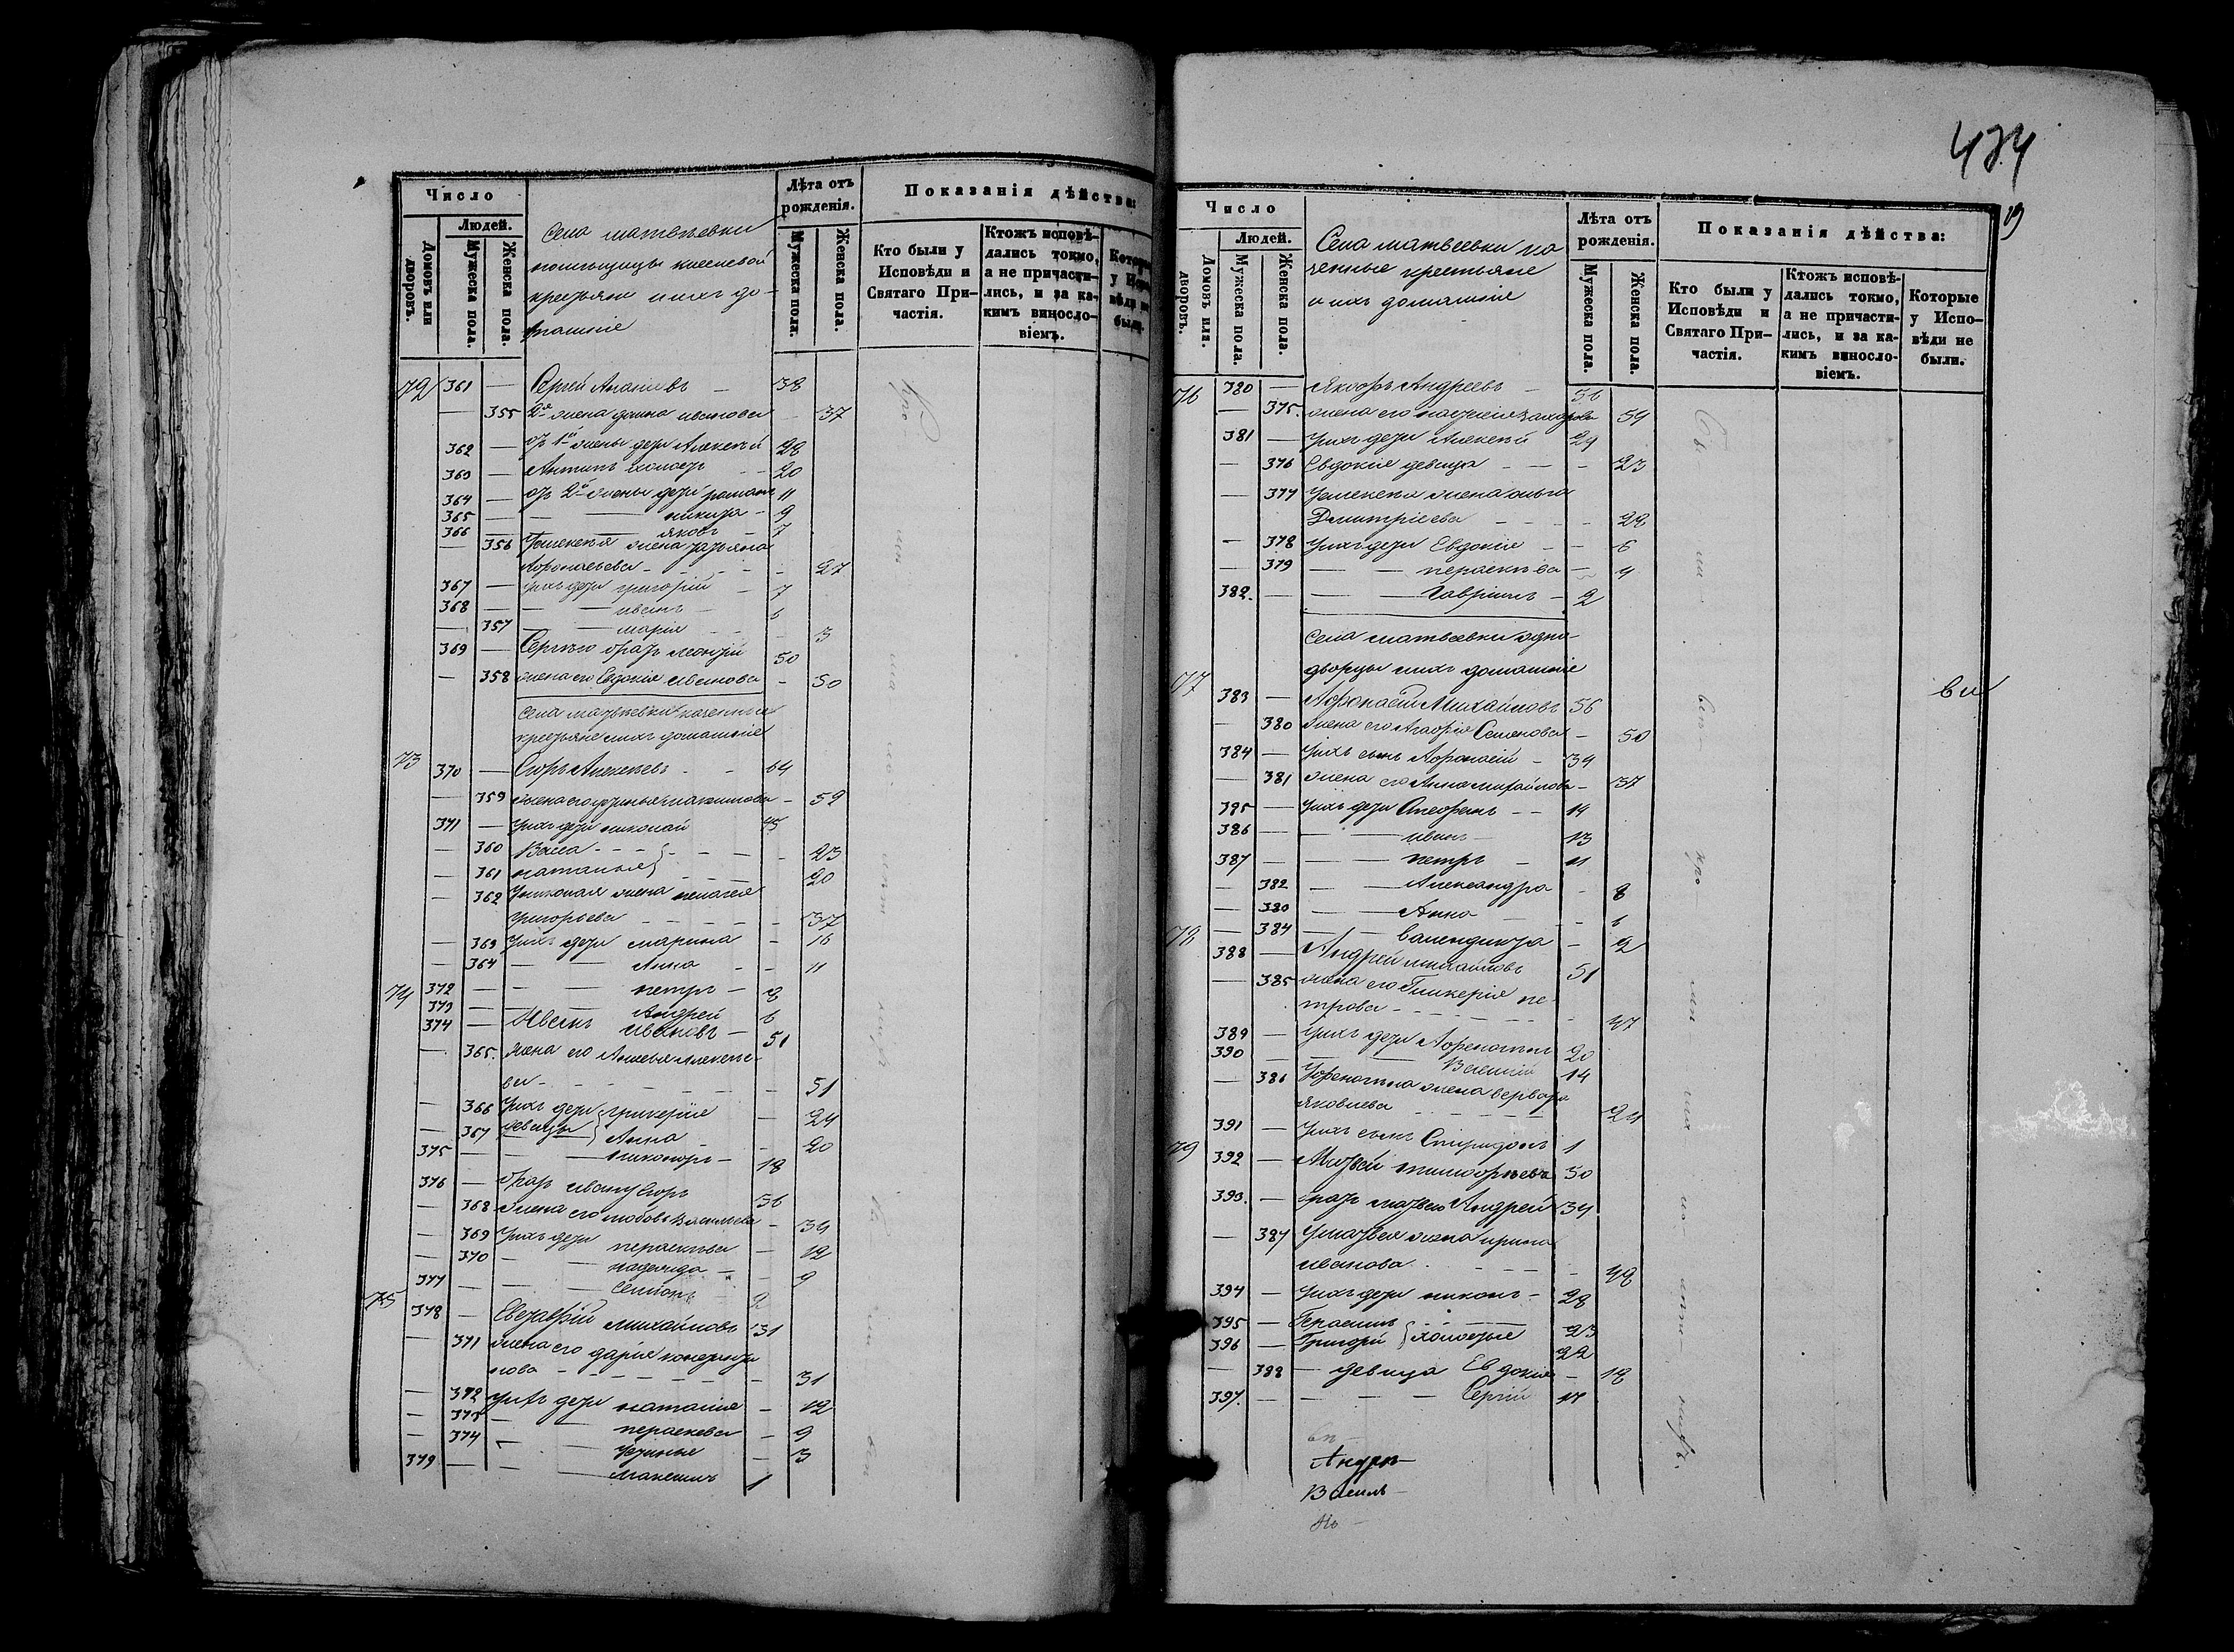 Число
Людей.
Домовъ или дворовъ.
Мужеска пола.
Женска пола.
Села матвѣевки
помѣщицы
крестьяни и ихъ до-
машніе
Лѣта отъ рожденія.
Мужеска пола.
Женска пола.
Показанія дѣйства:
Кто были у Исповѣди и Святаго При-частія.
Ктожъ исповѣ-дались токмо, а не причасти-лись, и за ка-кимъ винослo-віемъ.
72 361 — Сергѣй Ананьевъ — 38
— 355 2я жена домна иванова — 37
362 — отъ 1й жены дети Алексѣй 28
363 — Антипъ холостъ — 20
364 — отъ 2й жены дети романъ 11
365 — — никита — 9
366 — — яковъ — 7
— 356 Уалексѣя жена татьяна
Афонасьева — 27
367 — ихъ дети григорій — 7
368 — — иванъ — 6
— 357 — марія — 3
369 — Сергѣю братъ леонтій 50
— 358 жена его Евдокія иванова — 50
Села матвѣевки казенные
крестьяне и ихъ домашніе
73 370 — Егоръ Алексѣевъ — 64
— 359 жена его — 59
371 — Уихъ дети николай 45
— 360 Васса — 23
— 361 наталья — 20
— 362 Униколая жена пелагея
григорьева — 37
— 363 Уихъ дети марина — 16
— 364 — Анна — 11
372 — — петръ — 8
373 — — Андрей 6
74 374 — Иванъ Ивановъ — 51
— 365. жена его Алексѣе-
ва — 51
— 366 Уихъ дети гликерія — 24
— 367 девицы Анна — 20
375 — — никаноръ — 18
376 — братъ ивану Егоръ 36
— 368 жена его любовь Васильева — 34
— 369 Уихъ дети пераскева — 12
— 370 — надежда — 9
377 — — Семионъ — 2
75 378 — Евстафій михайловъ 31
— 371 жена его дарія
нова — 31
— 372 уихъ дети наталія — 12
— 373 — пераскева — 9
— 374 — Устинья — 3
379 — — Максимъ 1
434
19
Число
Людей.
Домовъ или дворовъ.
Мужеска пола.
Женска пола.
Села матвеевки ка-
зенные крестьяне
и ихъ домашніе
Лѣта отъ рожденія.
Мужеска пола.
Женска пола.
Показанія дѣйства:
Кто были у Исповѣди и Святаго При-частія.
Ктожъ исповѣ-дались токмо, а не причасти-лись, и за ка-кимъ винослo-віемъ.
Которые у Испо-вѣди не были.
76 380 — Якофъ Андреевъ — 56
— 375. жена его наталія захарова 59
381 — Уихъ дети Алексѣй 29
— 376 Евдокія девица — 23
— 377 Уалексѣя жена ольга
Дмитріева — 28
— 378 Уихъ дети Евдокія — 6
— 379 — — пераскѣва — 4
382. — — — Гавріилъ — 2
Села матвѣевки одно-
дворцы и ихъ домашніе
77 383 — Афонасій Михайловъ 56
— 380 жена его Агафія Семенова — 50
384 — Уихъ сынъ Афонасій — 34
— 381 жена его Анна михайлова — 37
385 — Уихъ дети Стефанъ — 14
386 — — иванъ — 13
387 — — петръ — 11
— 382 — Александра — 8
— 383 — Анна — 6
— 384 — Валендина — 2
78 388 — Андрей михайловъ 51
— 385 жена его Гликерія пе-
трова — 47
389 — Уихъ дети Афеногенъ 20
390 — — Василій 14
— 386 Уафеногена жена варвара
яковлева — 24
391 — Уихъ сынъ Спиридонъ 1
79 392 — Матвей тимофѣевъ 50
393. — братъ матвею Андрей 34
— 387 Уматвея жена ирина
иванова. — 48
394 — Уихъ дети никонъ — 28
395 — Герасимъ — 23
396 — Григорій холостые 22
— 388 — девица Евдокія — 18
397. — — Сергій 17
Андрѣ—
Василь—